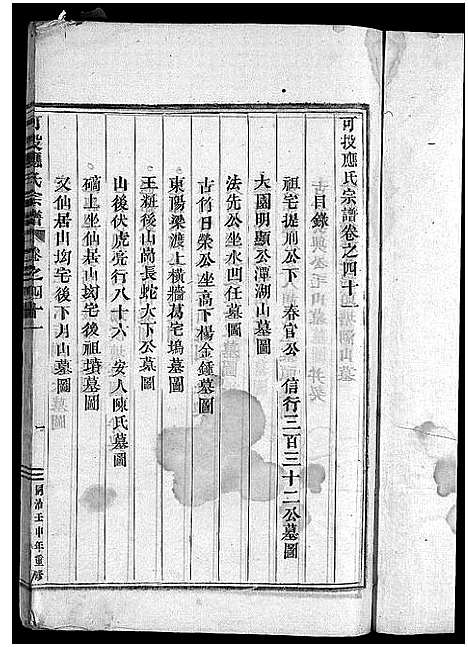 可投應氏宗譜卷之四十一
目錄
祖宅提刑公下 春官公 信行三百三十二公墓圖
大園明顯公潭湖山墓圖
法先公坐水凹任墓圖
古竹日榮公坐高下楊金鍾墓圖
東陽梁渡上橫牆葛宅塢墓圖
王新後山崗長蛇大下公墓圖
山後伏虎亮行八十六 安人陳氏墓圖
礩上坐仙居山㘭宅後祖墳墓圖
又仙居山㘭宅後下月山墓圖
可投應氏宗譜 卷之四十一
一
同治壬申年重修